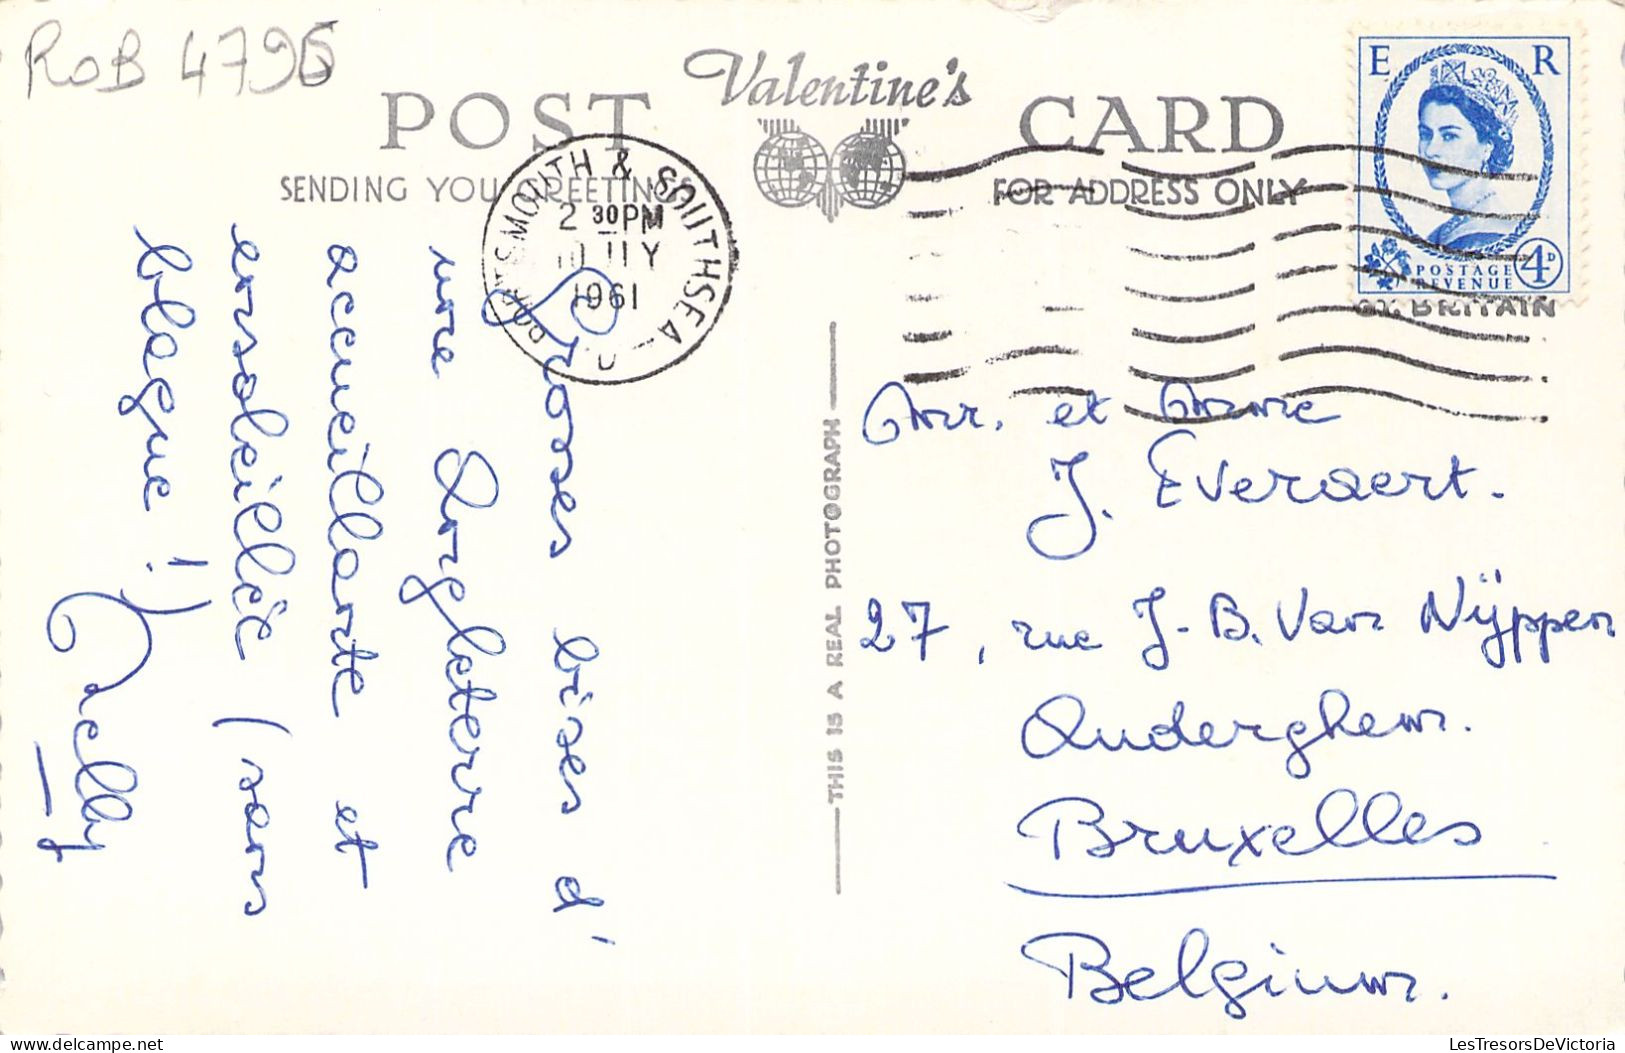 ROB 4796
Valentine's
POST CARD
SENDING YOU GREETINGS
FOR ADDRESS ONLY
E R
POSTAGE
REVENUE
4D
GT. BRITAIN
PORTSMOUTH & SOUTHSEA
2 30PM
1961
THIS IS A REAL PHOTOGRAPH
Grosses bises d'
une Angleterre
accueillante et
ensoleillée (sans
blague !)
Nelly
Mr. et Mme
J. Everaert.
27, rue J-B. Van Nÿppen
Auderghem.
Bruxelles
Belgium.
LesTresorsDeVictoria.com